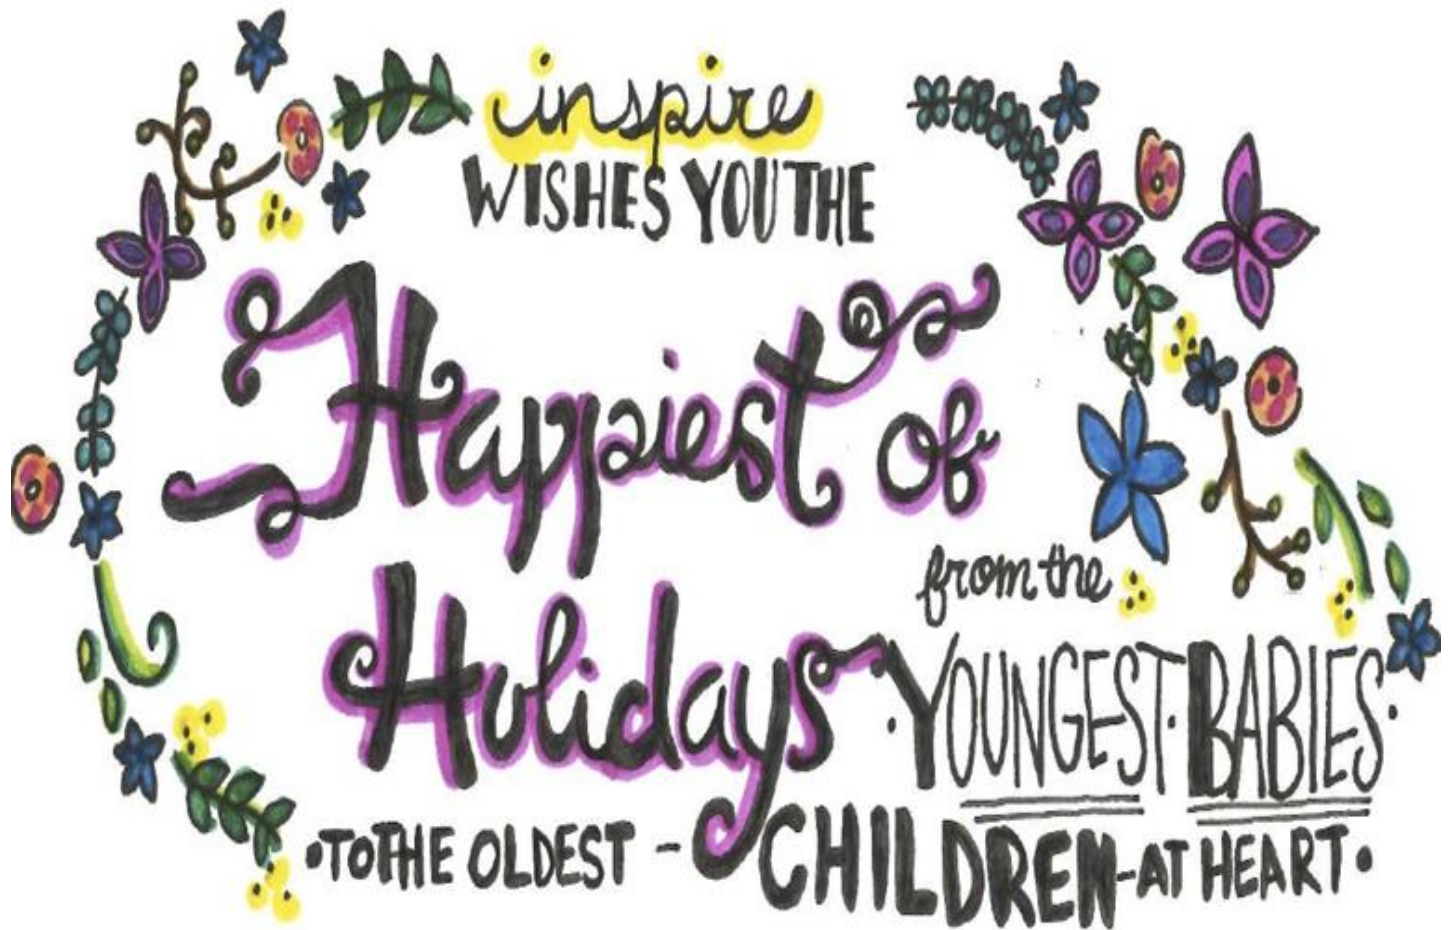 inspire
WISHES YOU THE
Happiest of
Holidays
from the
·YOUNGEST·BABIES·
·TO THE OLDEST - CHILDREN-AT HEART·